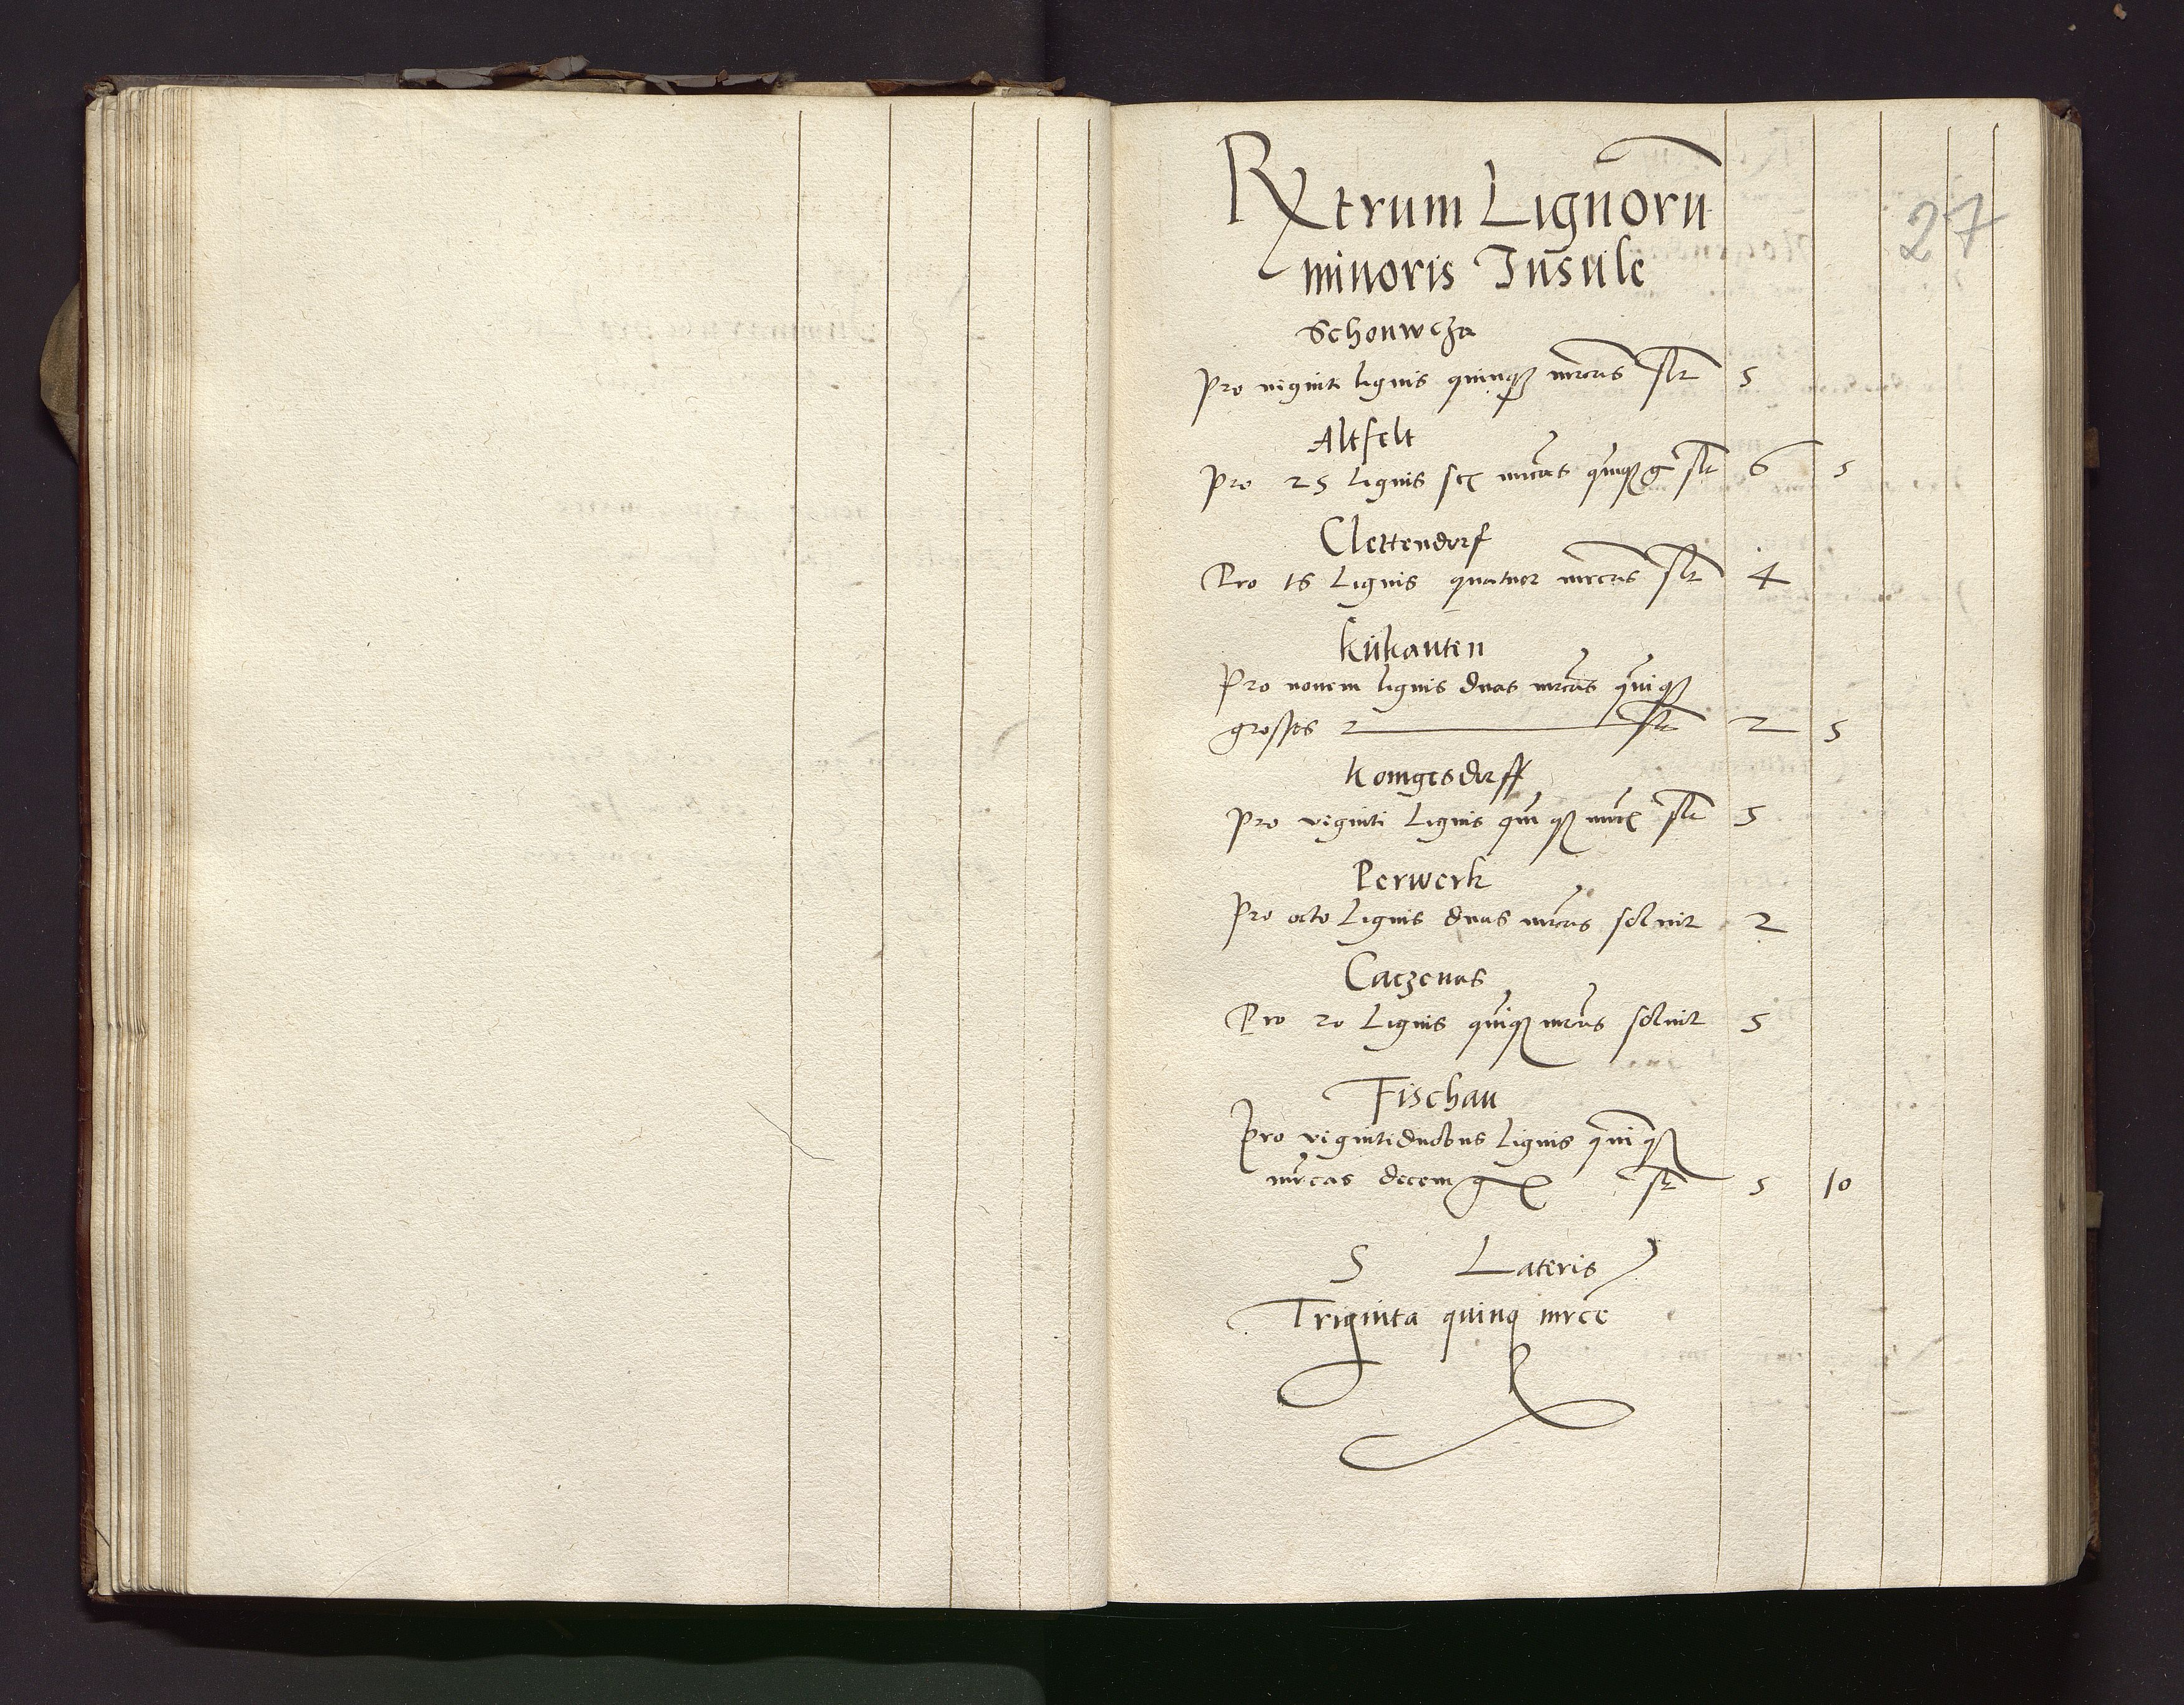 Rxtrum Lignorū
27
minoris Insule
Schonweza
Pro viginti lignis quinqȝ mrcas slt 5
Altfelt
Pro 25 lignis sex mrcas quinqȝ g slt 6 5
Clettendorf
Pro 16 Lignis quatuor mrcas slt 4
kükauten
Pro novem lignis duas mrcas quinqȝ
grosses 2 slt 2 5
konigesdorff
Pro viginti Lignis quinqȝ mrcs slt 5
Perwerk
Pro octo Lignis duas mrcas solvit 2
Caczenas
Pro 20 Lignis quinqȝ mrcas solvit 5
Fischau
Pro vigintiduobus Lignis quinqȝ
mrcas decem g slt 5 10
S Lateris
Triginta quinq mrce